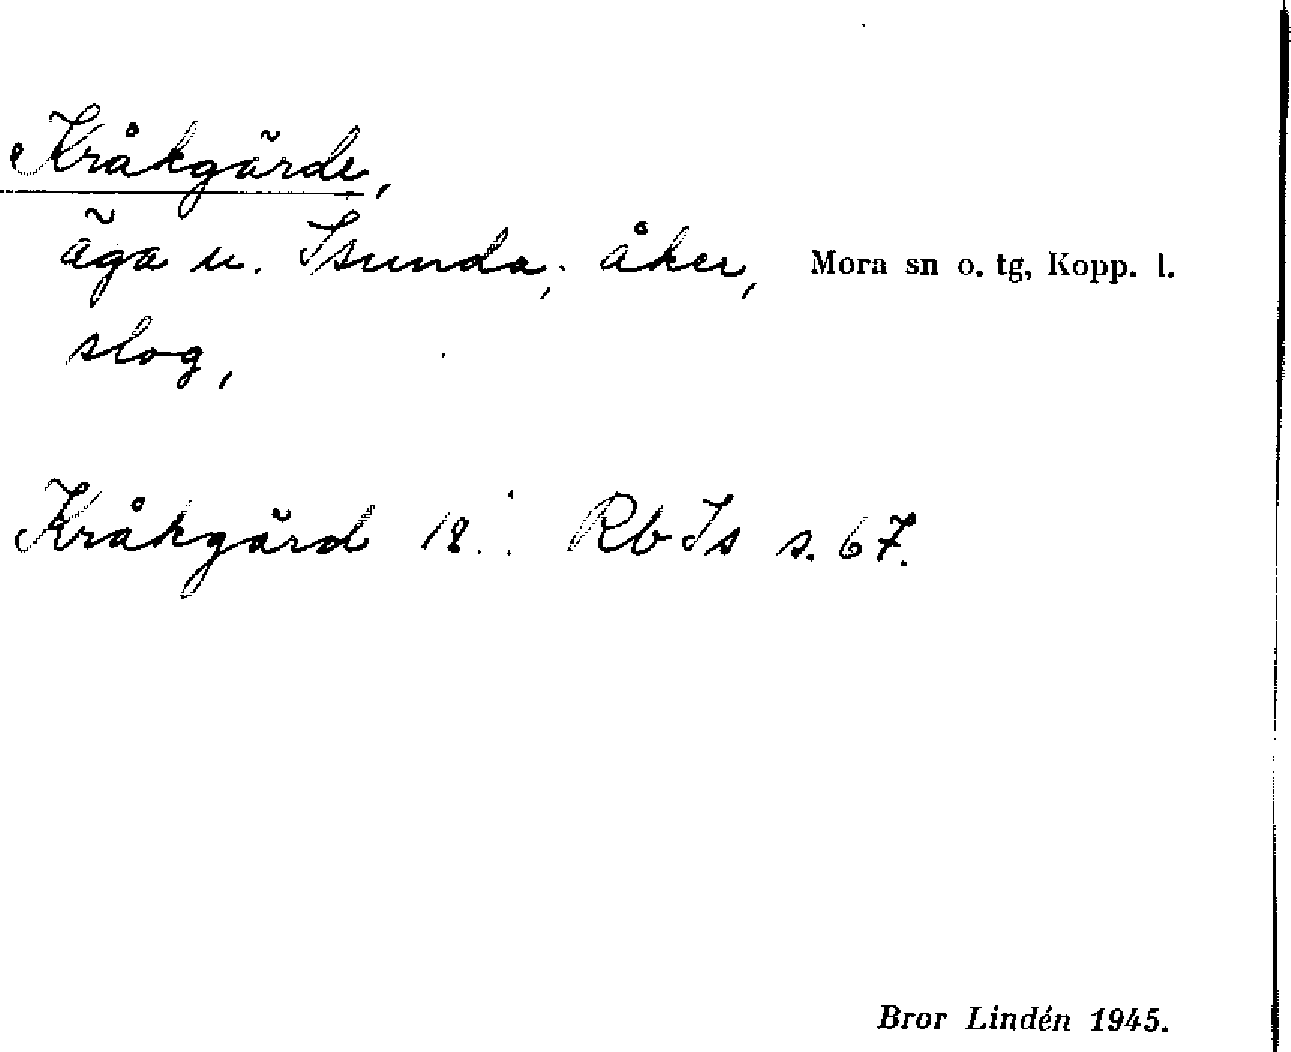 Kråkgärde,
äga u. Isunda; åker, Mora sn o. tg, Kopp. l.
slog,
Kråkgärd 18.. Rb Is s. 67.
Bror Lindén 1945.